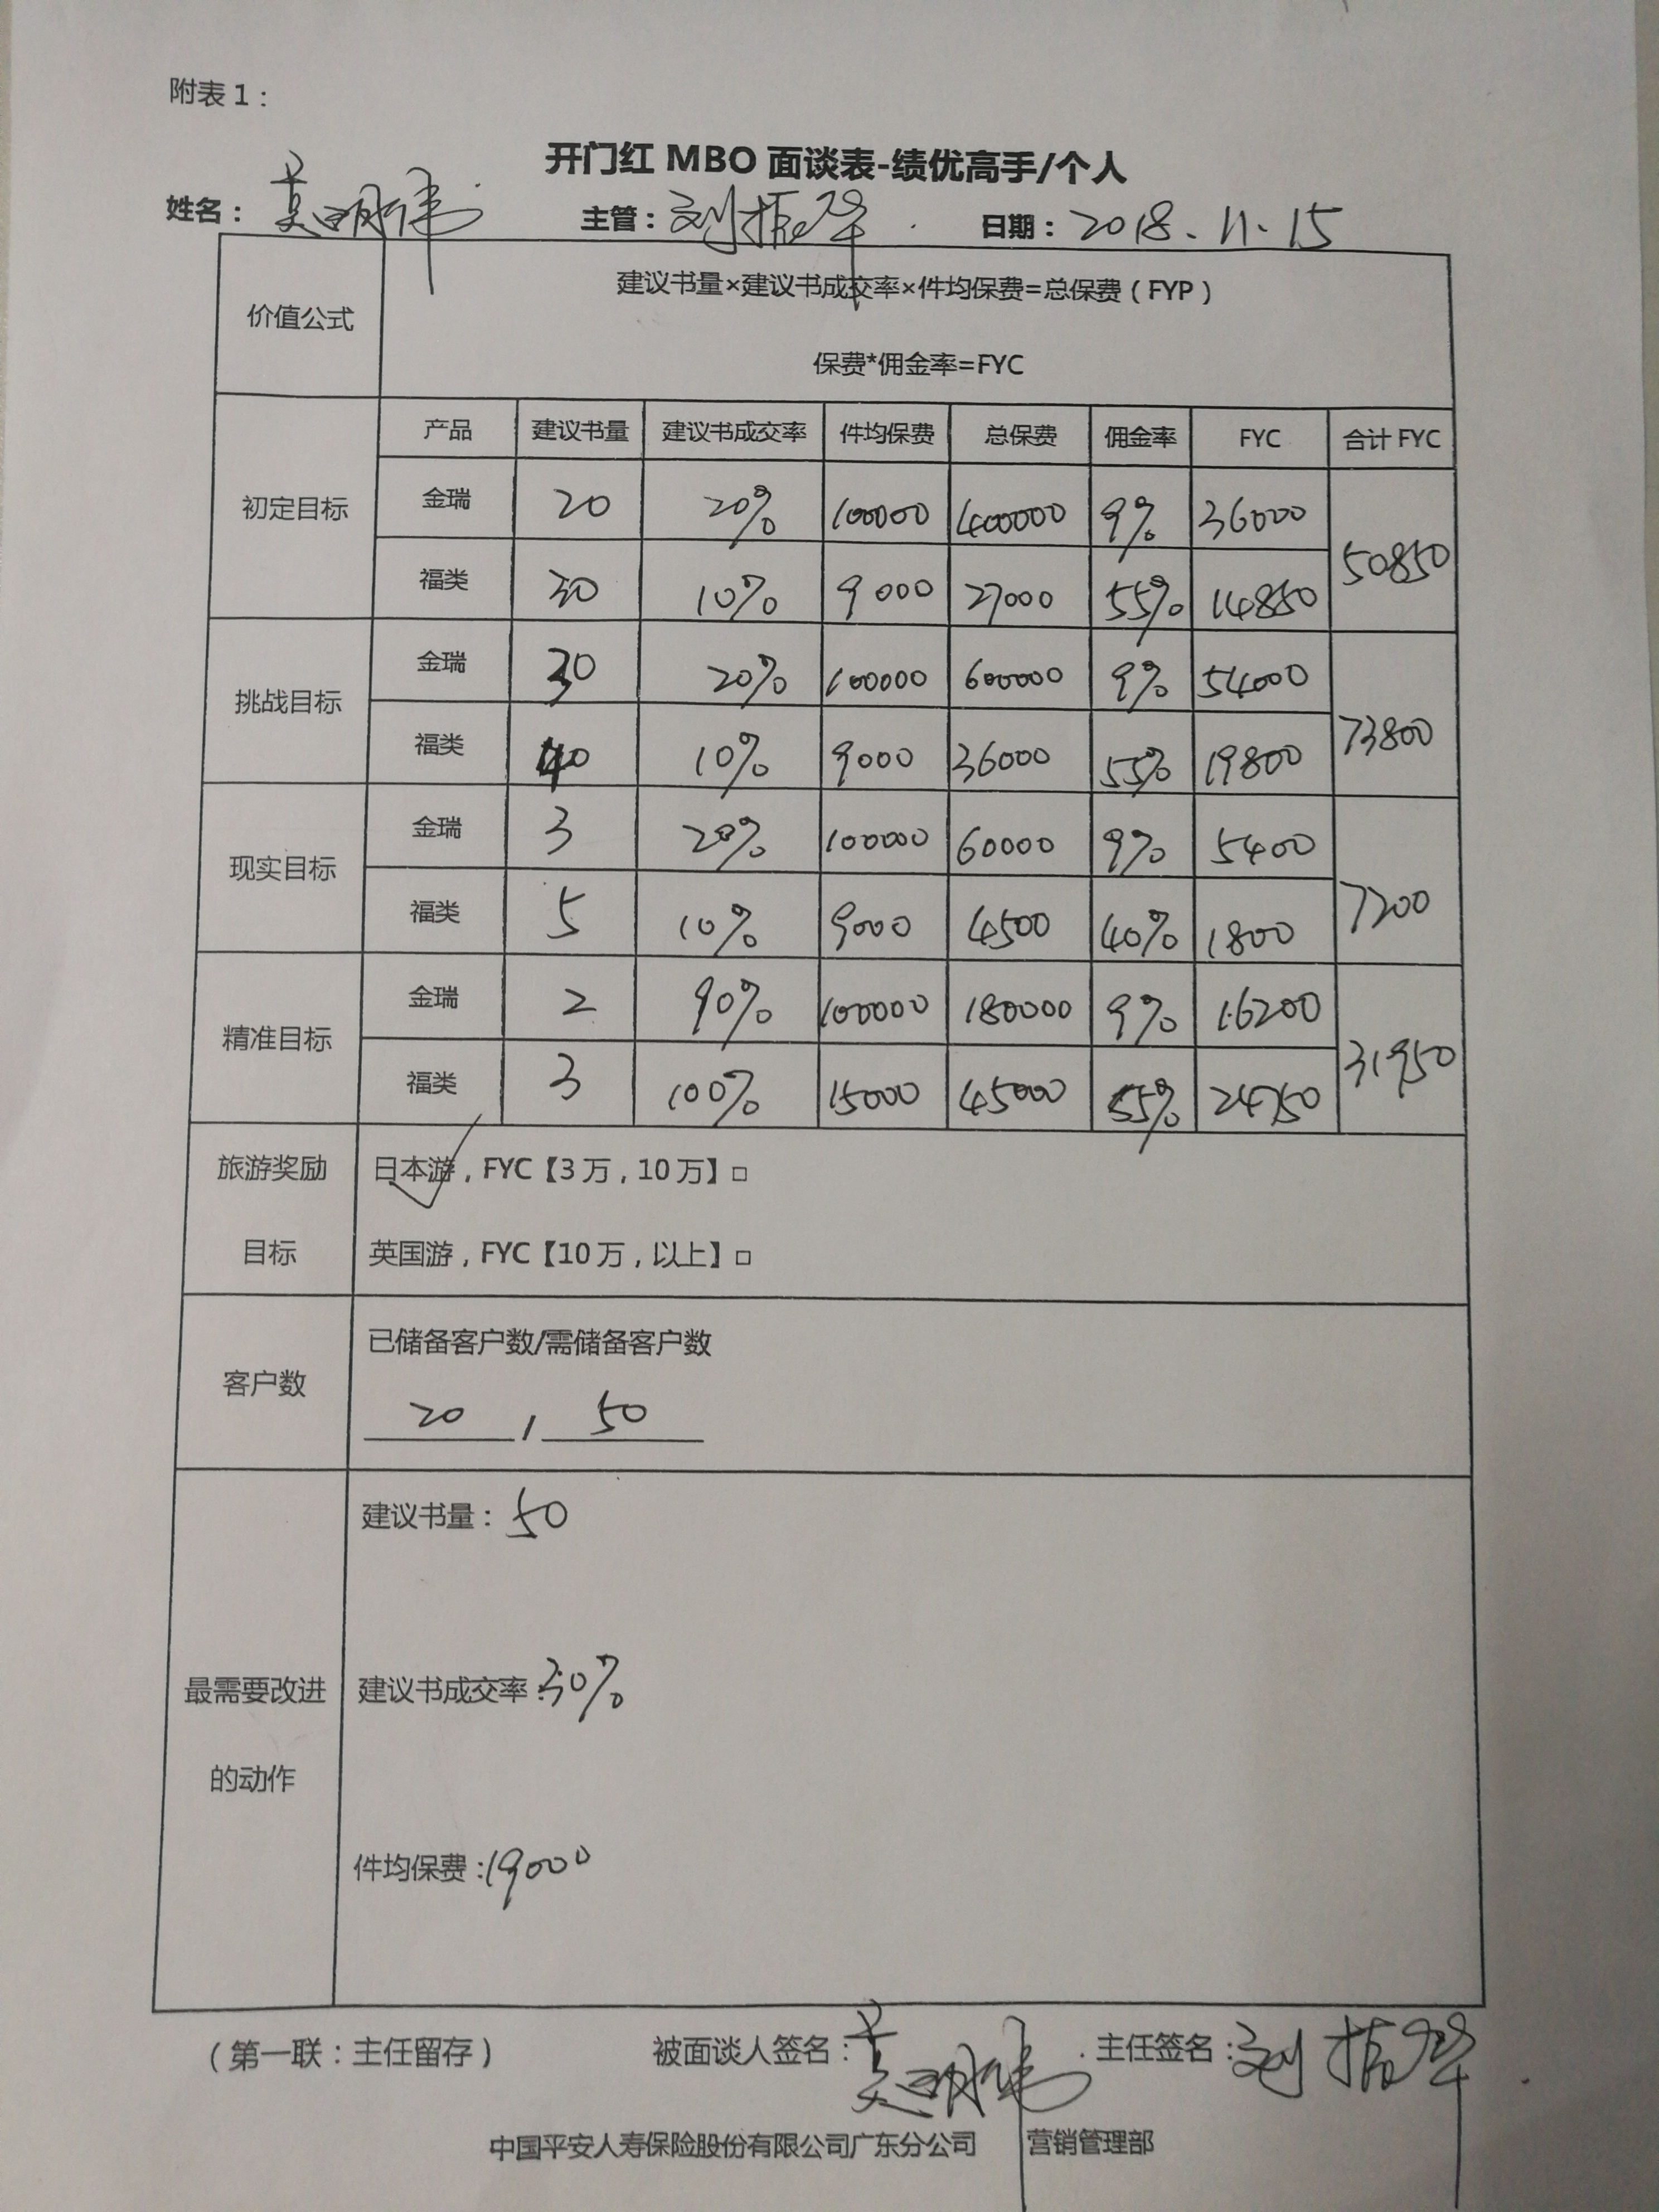 附表 1：
开门红 MBO 面谈表-绩优高手/个人
姓名： 主管：刘振华 日期：2018.11.15
价值公式
建议书量×建议书成交率×件均保费=总保费（FYP）
保费*佣金率=FYC
产品 建议书量 建议书成交率 件均保费 总保费 佣金率 FYC 合计 FYC
初定目标
金瑞 20 20% 100000 400000 9% 36000
50850
福类 30 10% 9000 27000 55% 14850
挑战目标
金瑞 30 20% 100000 600000 9% 54000
73800
福类 40 10% 9000 36000 55% 19800
现实目标
金瑞 3 20% 100000 60000 9% 5400
7200
福类 5 10% 9000 4500 40% 1800
精准目标
金瑞 2 90% 100000 180000 9% 16200
31950
福类 3 100% 15000 45000 55% 24750
旅游奖励
目标
日本游，FYC【3 万，10 万】□
英国游，FYC【10 万，以上】□
客户数
已储备客户数/需储备客户数
20 / 50
最需要改进
的动作
建议书量：50
建议书成交率：30%
件均保费：19000
（第一联：主任留存） 被面谈人签名： 主任签名：刘振华
中国平安人寿保险股份有限公司广东分公司 营销管理部